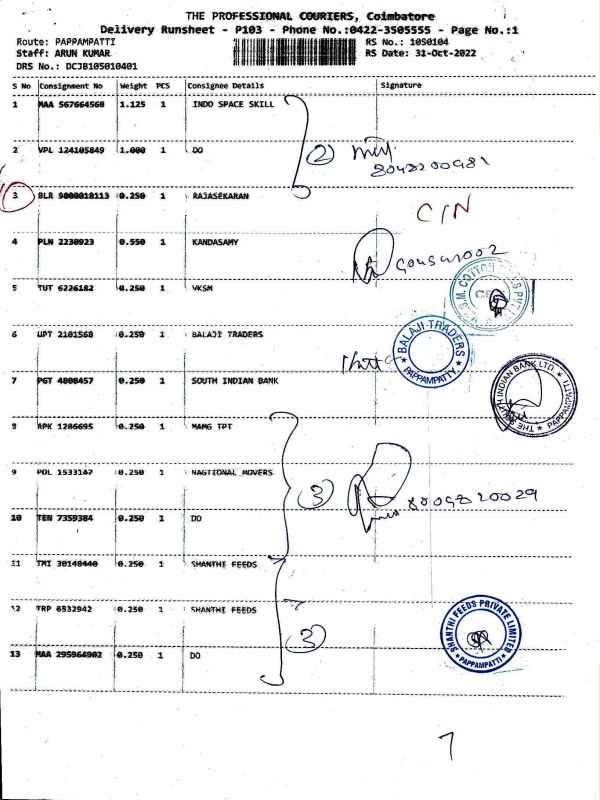 THE PROFESSIONAL COURIERS, Coimbatore
Delivery Runsheet - P103 - Phone No.:0422-3505555 - Page No.:1
Route: PAPPAMPATTI
RS No.: 1050104
Staff: ARUN KUMAR
RS Date: 31-Oct-2022
DRS No.: DCJB105010401
S No Consignment No Weight PCS Consignee Details Signature
1 MAA 567664568 1.125 1 INDO SPACE SKILL
2 VPL 124105849 1.000 1 DO 2
3 BLR 9000018113 0.250 1 RAJASEKARAN C/N
4 PLN 2230923 0.550 1 KANDASAMY
5 TUT 6226182 0.250 1 VKSM
6 UPT 2101568 0.250 1 BALAJI TRADERS
BALAJI TRADERS
PAPPAMPATTY
7 PGT 4808457 0.250 1 SOUTH INDIAN BANK
THE SOUTH INDIAN BANK LTD.
PAPPAMPATTI
8 APK 1286695 0.250 1 MAMG TPT
9 POL 1533147 0.250 1 NAGTIONAL MOVERS 3
8098820029
10 TEN 7359384 0.250 1 DO
11 TMI 30148440 0.250 1 SHANTHI FEEDS
12 TRP 6532942 0.250 1 SHANTHI FEEDS 3
SHANTHI FEEDS PRIVATE LIMITED
PAPPAMPATTI
13 MAA 295964902 0.250 1 DO
7